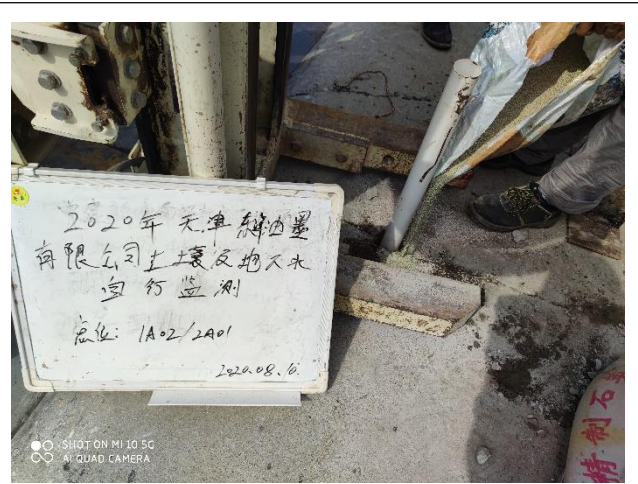 2020年天津東洋油墨
有限公司土壤及地下水
自行监测
点位: 1A02/2A01
2020.08.10.
SHOT ON MI 10 5G
AI QUAD CAMERA
精制石